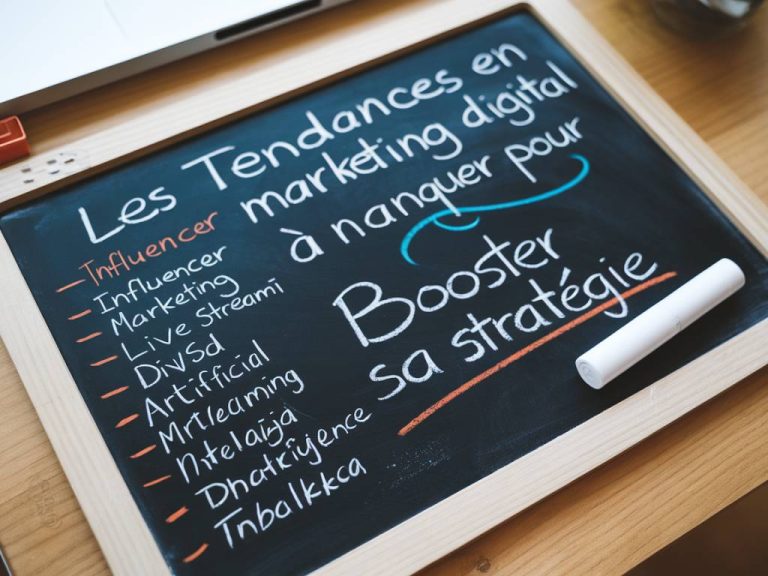 Les Tendances en
marketing digital
à nanquer pour
Booster
sa stratégie
Influencer
Influencer
Marketing
Live Streami
DivSd
Artifficial
Mrtleaming
Nitelaijja
Dhatkiyjence
Tnbalkkca